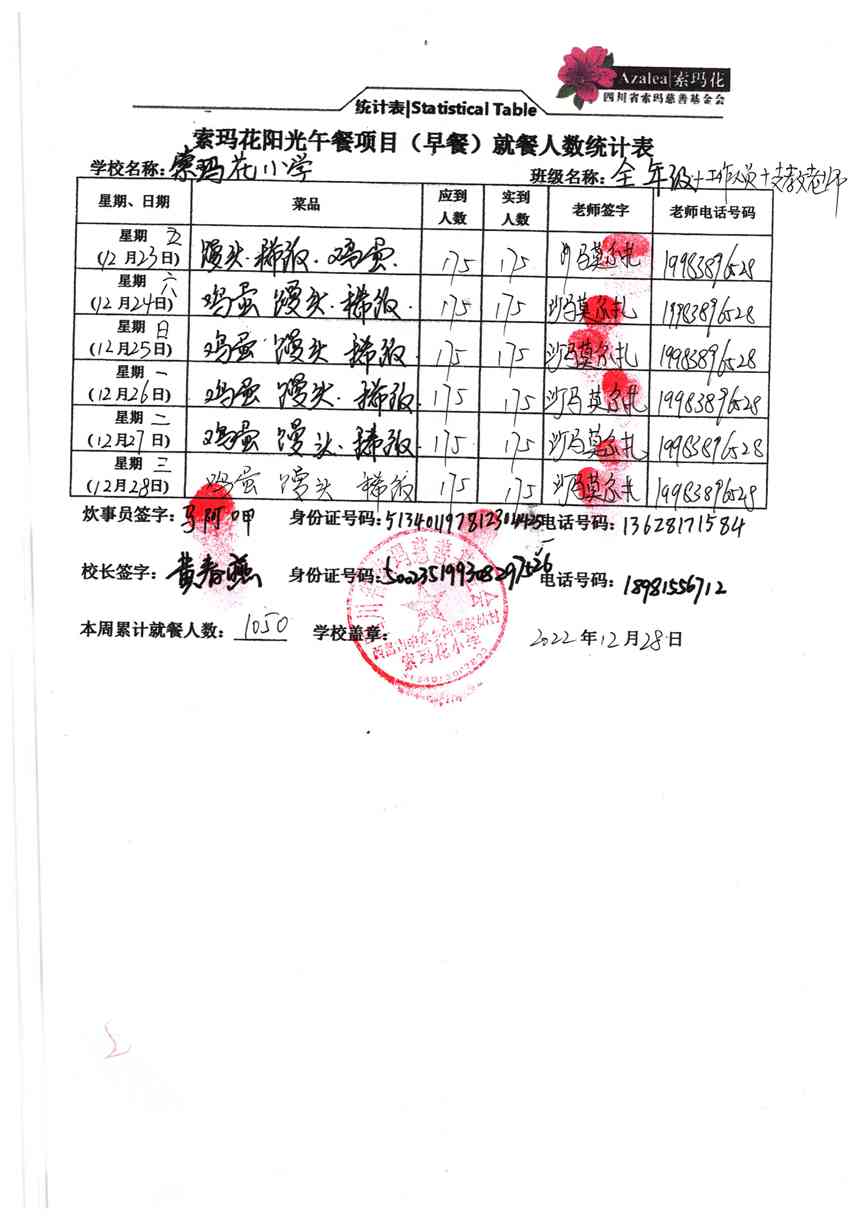 Azalea 索玛花
四川省索玛慈善基金会
统计表|Statistical Table
索玛花阳光午餐项目（早餐）就餐人数统计表
学校名称：索玛花小学 班级名称：全年级+工作人员+支教老师
星期、日期 菜品 应到人数 实到人数 老师签字 老师电话号码
星期 五 (12月23日) 馒头.稀饭.鸡蛋. 175 175 沙马莫尔扎 19983896528
星期 六 (12月24日) 鸡蛋 馒头.稀饭. 175 175 沙马莫尔扎 19983896528
星期 日 (12月25日) 鸡蛋 馒头 稀饭 175 175 沙马莫尔扎 19983896528
星期 一 (12月26日) 鸡蛋 馒头.稀饭 175 175 沙马莫尔扎 19983896528
星期 二 (12月27日) 鸡蛋 馒头.稀饭. 175 175 沙马莫尔扎 19983896528
星期 三 (12月28日) 鸡蛋 馒头 稀饭 175 175 沙马莫尔扎 19983896528
炊事员签字：马阿呷 身份证号码： 电话号码：13628171584
校长签字：黄春燕 身份证号码：500235199308297526 电话号码：18981556712
本周累计就餐人数：1050 学校盖章： 2022年12月28日
索玛花小学